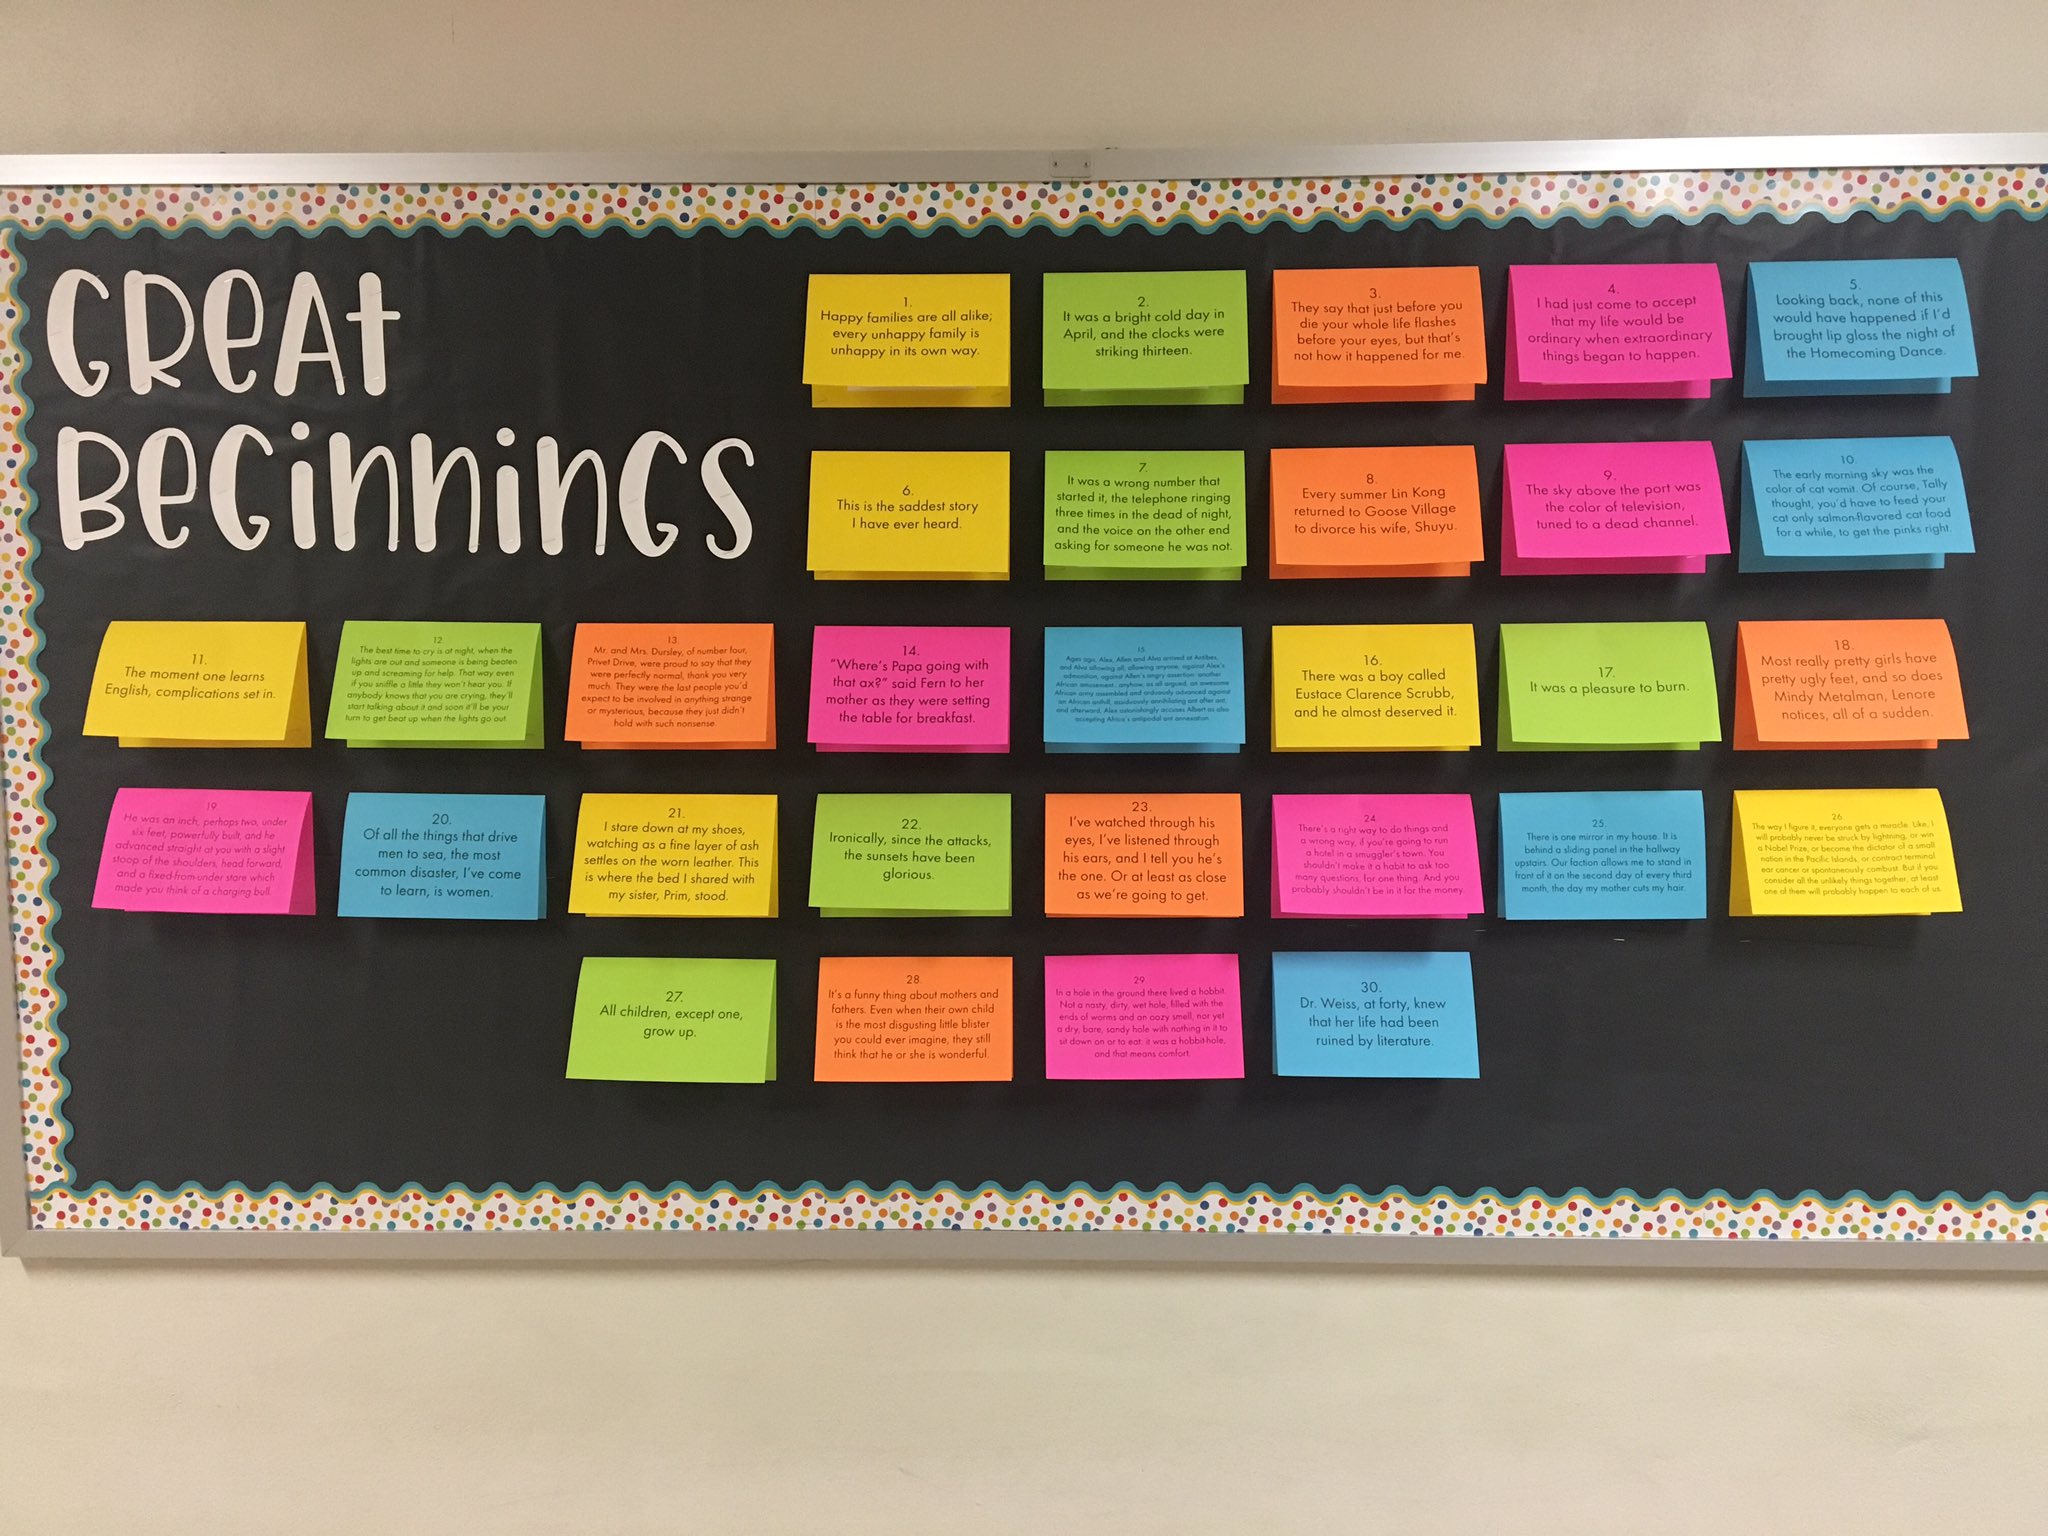 GREAT
BEGINNINGS
1.
Happy families are all alike;
every unhappy family is
unhappy in its own way.
2.
It was a bright cold day in
April, and the clocks were
striking thirteen.
3.
They say that just before you
die your whole life flashes
before your eyes, but that's
not how it happened for me.
4.
I had just come to accept
that my life would be
ordinary when extraordinary
things began to happen.
5.
Looking back, none of this
would have happened if I'd
brought lip gloss the night of
the Homecoming Dance.
6.
This is the saddest story
I have ever heard.
7.
It was a wrong number that
started it, the telephone ringing
three times in the dead of night,
and the voice on the other end
asking for someone he was not.
8.
Every summer Lin Kong
returned to Goose Village
to divorce his wife, Shuyu.
9.
The sky above the port was
the color of television,
tuned to a dead channel.
10.
The early morning sky was the
color of cat vomit. Of course, Tally
thought, you'd have to feed your
cat only salmon-flavored cat food
for a while, to get the pinks right.
11.
The moment one learns
English, complications set in.
12.
The best time to cry is at night, when the
lights are out and someone is being beaten
up and screaming for help. That way even
if you sniffle a little they won't hear you. If
anybody knows that you are crying, they'll
start talking about it and soon it'll be your
turn to get beat up when the lights go out.
13.
Mr. and Mrs. Dursley, of number four,
Privet Drive, were proud to say that they
were perfectly normal, thank you very
much. They were the last people you'd
expect to be involved in anything strange
or mysterious, because they just didn't
hold with such nonsense.
14.
"Where's Papa going with
that ax?" said Fern to her
mother as they were setting
the table for breakfast.
15.
Ages ago, Alex, Allen and Alva arrived at Antibes,
and Alva allowing all, allowing anyone, against Alex's
admonition, against Allen's angry assertion: another
African amusement... anyhow, as all argued, an awesome
African army assembled and arduously advanced against
an African anthill, assiduously annihilating ant after ant,
and afterward, Alex astonishingly accuses Albert as also
accepting Africa's antipodal ant annexation.
16.
There was a boy called
Eustace Clarence Scrubb,
and he almost deserved it.
17.
It was a pleasure to burn.
18.
Most really pretty girls have
pretty ugly feet, and so does
Mindy Metalman, Lenore
notices, all of a sudden.
19.
He was an inch, perhaps two, under
six feet, powerfully built, and he
advanced straight at you with a slight
stoop of the shoulders, head forward,
and a fixed-from-under stare which
made you think of a charging bull.
20.
Of all the things that drive
men to sea, the most
common disaster, I've come
to learn, is women.
21.
I stare down at my shoes,
watching as a fine layer of ash
settles on the worn leather. This
is where the bed I shared with
my sister, Prim, stood.
22.
Ironically, since the attacks,
the sunsets have been
glorious.
23.
I've watched through his
eyes, I've listened through
his ears, and I tell you he's
the one. Or at least as close
as we're going to get.
24.
There's a right way to do things and
a wrong way, if you're going to run
a hotel in a smuggler's town. You
shouldn't make it a habit to ask too
many questions, for one thing. And you
probably shouldn't be in it for the money.
25.
There is one mirror in my house. It is
behind a sliding panel in the hallway
upstairs. Our faction allows me to stand in
front of it on the second day of every third
month, the day my mother cuts my hair.
26.
The way I figure it, everyone gets a miracle. Like, I
will probably never be struck by lightning, or win
a Nobel Prize, or become the dictator of a small
nation in the Pacific Islands, or contract terminal
ear cancer or spontaneously combust. But if you
consider all the unlikely things together, at least
one of them will probably happen to each of us.
27.
All children, except one,
grow up.
28.
It's a funny thing about mothers and
fathers. Even when their own child
is the most disgusting little blister
you could ever imagine, they still
think that he or she is wonderful.
29
In a hole in the ground there lived a hobbit.
Not a nasty, dirty, wet hole, filled with the
ends of worms and an oozy smell, nor yet
a dry, bare, sandy hole with nothing in it to
sit down on or to eat: it was a hobbit-hole,
and that means comfort.
30.
Dr. Weiss, at forty, knew
that her life had been
ruined by literature.